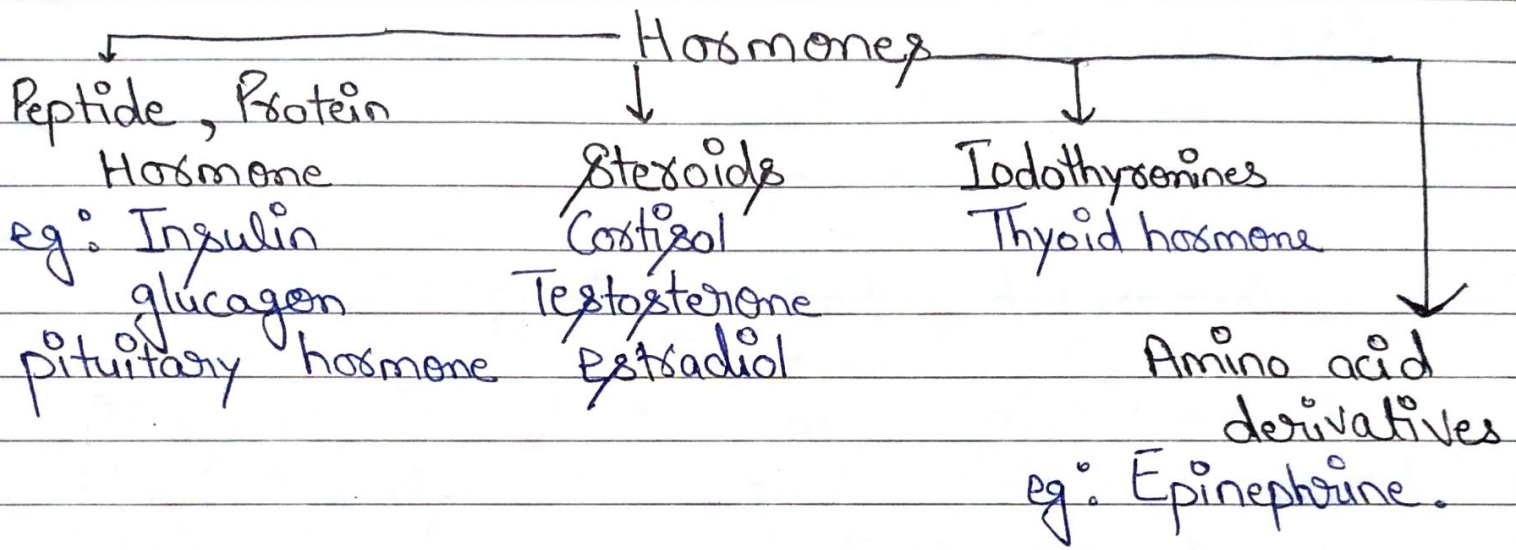 Hormones
Peptide, Protein
Hormone
eg: Insulin
glucagon
pituitary hormone
Steroids
Cortisol
Testosterone
estradiol
Iodothyronines
Thyoid hormone
Amino acid
derivatives
eg: Epinephrine.